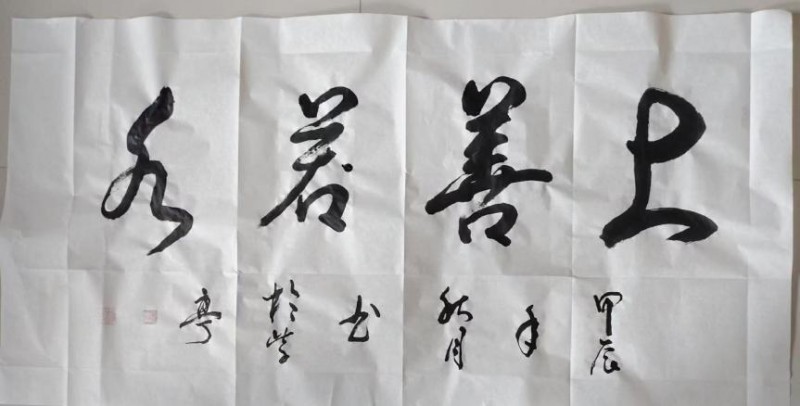 上善若水
甲辰
年
秋月
书
於
亭